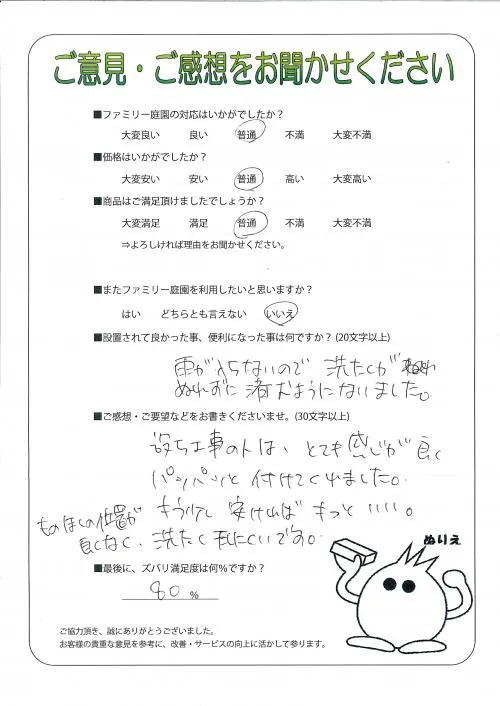 ご意見・ご感想をお聞かせください
■ファミリー庭園の対応はいかがでしたか？
大変良い 良い 普通 不満 大変不満
■価格はいかがでしたか？
大変安い 安い 普通 高い 大変高い
■商品はご満足頂けましたでしょうか？
大変満足 満足 普通 不満 大変不満
⇒よろしければ理由をお聞かせください。
■またファミリー庭園を利用したいと思いますか？
はい どちらとも言えない いいえ
■設置されて良かった事、便利になった事は何ですか？(20文字以上)
雨が入らないので 洗たくが
ぬれずに 済むようにないました。
■ご感想・ご要望などをお書きくださいませ。(30文字以上)
設ち工事の人は、とても感じが良く
パンパンと 付けてくれました。
もう少し 安ければ もっと いいい。
ものほしの位置が
良くなく、洗たく 干しにくいです。
■最後に、ズバリ満足度は何％ですか？
80 ％
ぬりえ
ご協力頂き、誠にありがとうございました。
お客様の貴重な意見を参考に、改善・サービスの向上に活かして参ります。